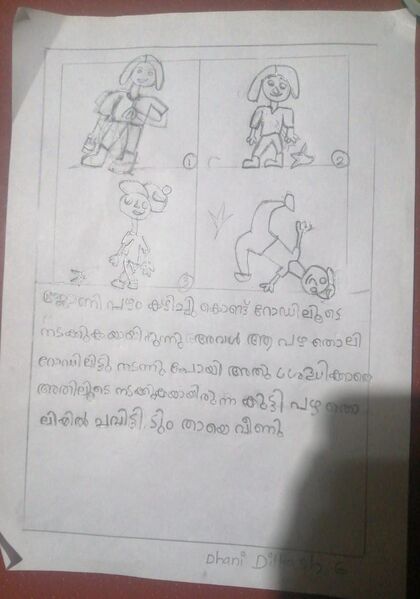 ①
②
③
ജോണി പഴം കഴിച്ചു കൊണ്ട് റോഡിലൂടെ
നടക്കുകയായിരുന്നു അവൾ ആ പഴ തൊലി
റോഡിലിട്ടു നടന്നു പോയി അതു ശ്രദ്ധിക്കാതെ
അതിലൂടെ നടക്കുകയായിരുന്ന കുട്ടി പഴ തൊ
ലിയിൽ ചവിട്ടി ടും തായെ വീണു
Dhani